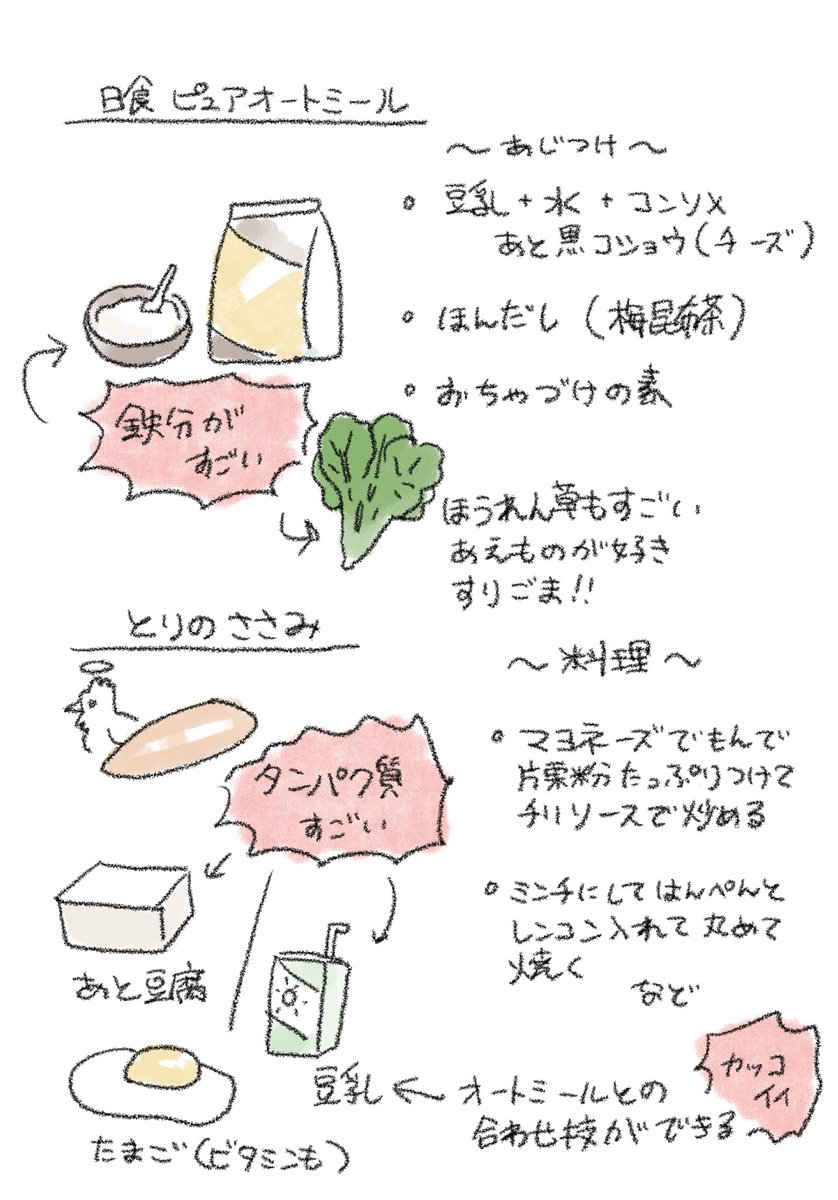 日食 ピュアオートミール
〜 あじつけ 〜
。豆乳 + 水 + コンソメ
あと黒コショウ(チーズ)
。ほんだし (梅昆布茶)
。おちゃづけの素
鉄分が
すごい
ほうれん草もすごい
あえものが好き
すりごま!!
とりの ささみ
〜 料理 〜
。マヨネーズでもんで
片栗粉たっぷりつけて
チリソースで炒める
タンパク質
すごい
。ミンチにして はんぺんと
レンコン入れて 丸めて
焼く
など
あと豆腐
たまご(ビタミンも)
豆乳 ← オートミールとの
合わせ技ができる〜
カッコ
イイ